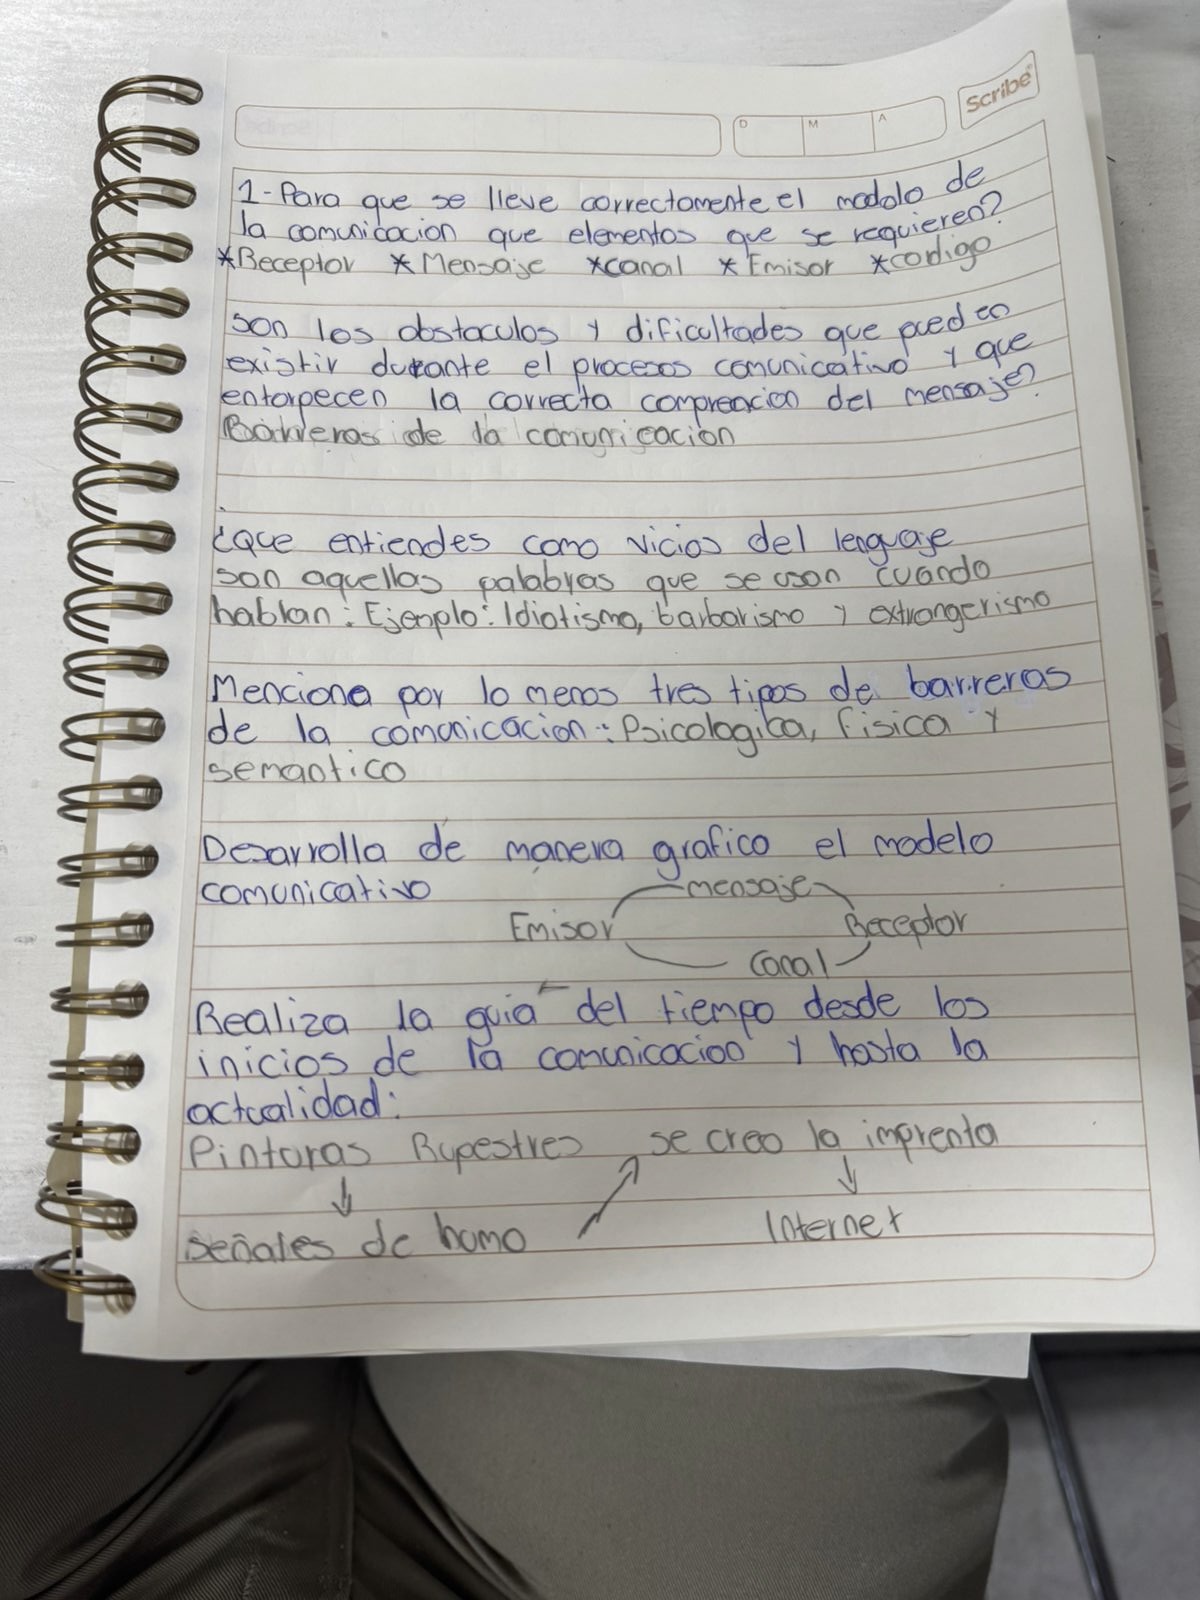 Scribe
D M A
1-Para que se lleve correctamente el modolo de
la comunicacion que elementos que se requieren?
*Receptor *Mensaje *canal *Emisor *codigo
son los obstaculos y dificultades que pueden
existir durante el procesos comunicativo y que
entorpecen la correcta compreacion del mensaje?
Barreras de la comunicacion
¿que entiendes como vicios del lenguaje
son aquellas palabras que se usan cuando
hablan: Ejemplo: Idiotismo, barbarismo y extrangerismo
Menciona por lo menos tres tipos de barreras
de la comunicacion: Psicologica, fisica y
semantico
Desarrolla de manera grafico el modelo
comunicativo
mensaje
Emisor Receptor
canal
Realiza la guia del tiempo desde los
inicios de la comunicacion y hasta la
actualidad:
Pinturas Rupestres se creo la imprenta
señales de humo Internet